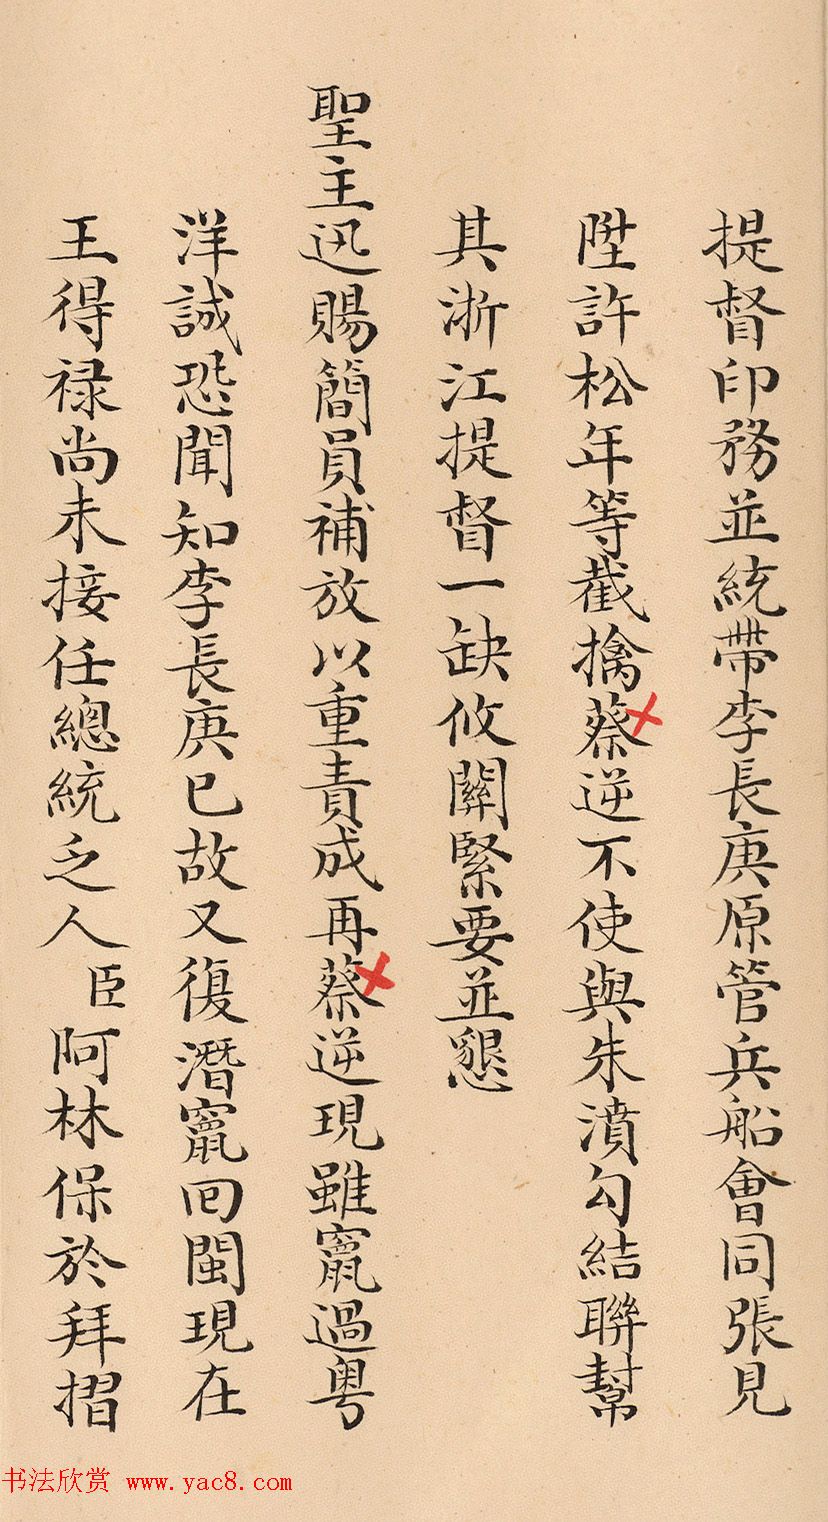 提督印務並統帶李長庚原管兵船會同張見
陞許松年等截擒蔡逆不使與朱濆勾結聯幫
其浙江提督一缺攸關緊要並懇
聖主迅賜簡員補放以重責成再蔡逆現雖竄過粤
洋誠恐聞知李長庚已故又復潛竄回閩現在
王得禄尚未接任總統乏人臣阿林保於拜摺
书法欣赏 www.yac8.com